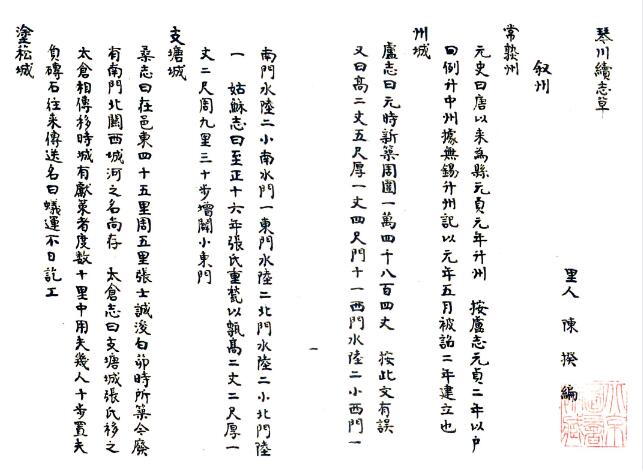 琴川續志草
里人 陳 揆 編
叙州
常熟州
元史曰唐以来為縣元貞元年升州 按盧志元貞二年以户
曰例升中州據無錫升州記以元年五月被詔二年建立也
州城
盧志曰元時新築周圍一萬四千八百四丈 按此文有誤
又曰高二丈五尺厚一丈四尺門十一西門水陸二小西門一
一
南門水陸二小南水門一東門水陸二北門水陸二小北門陸
一 姑蘇志曰至正十六年張氏重甃以甎高二丈二尺厚一
丈二尺周九里三十步增闢小東門
支塘城
桑志曰在邑東四十五里周五里張士誠浚白茆時所築今廢
有南門北關西城河之名尚存 太倉志曰支塘城張氏移之
太倉相傳移時城有獻策者度數十里中用夫幾人十步置夫
負磚石往来傳送名曰蟻運不日訖工
塗松城